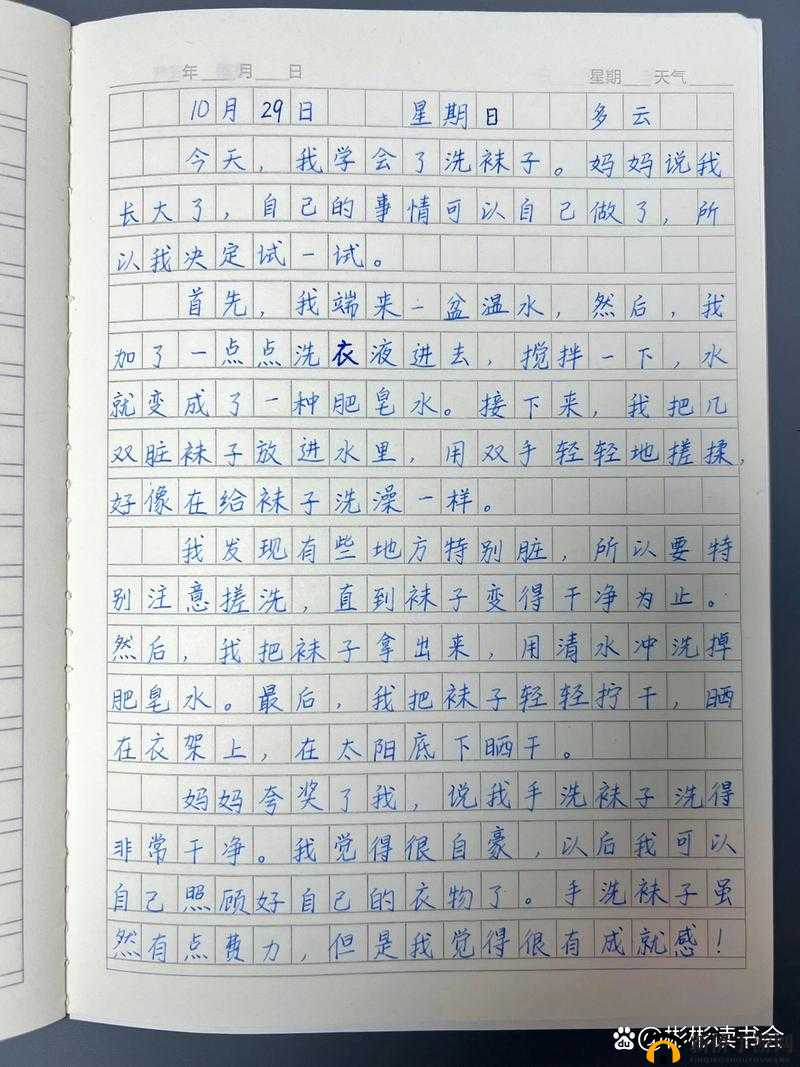 年 月 日 星期 天气
10月29日 星期日 多云
今天，我学会了洗袜子。妈妈说我
长大了，自己的事情可以自己做了，所
以我决定试一试。
首先，我端来一盆温水，然后，我
加了一点点洗衣液进去，搅拌一下，水
就变成了一种肥皂水。接下来，我把几
双脏袜子放进水里，用双手轻轻地搓揉，
好像在给袜子洗澡一样。
我发现有些地方特别脏，所以要特
别注意搓洗，直到袜子变得干净为止。
然后，我把袜子拿出来，用清水冲洗掉
肥皂水。最后，我把袜子轻轻拧干，晒
在衣架上，在太阳底下晒干。
妈妈夸奖了我，说我手洗袜子洗得
非常干净。我觉得很自豪，以后我可以
自己照顾好自己的衣物了。手洗袜子虽
然有点费力，但是我觉得很有成就感！
du @彬彬读书会